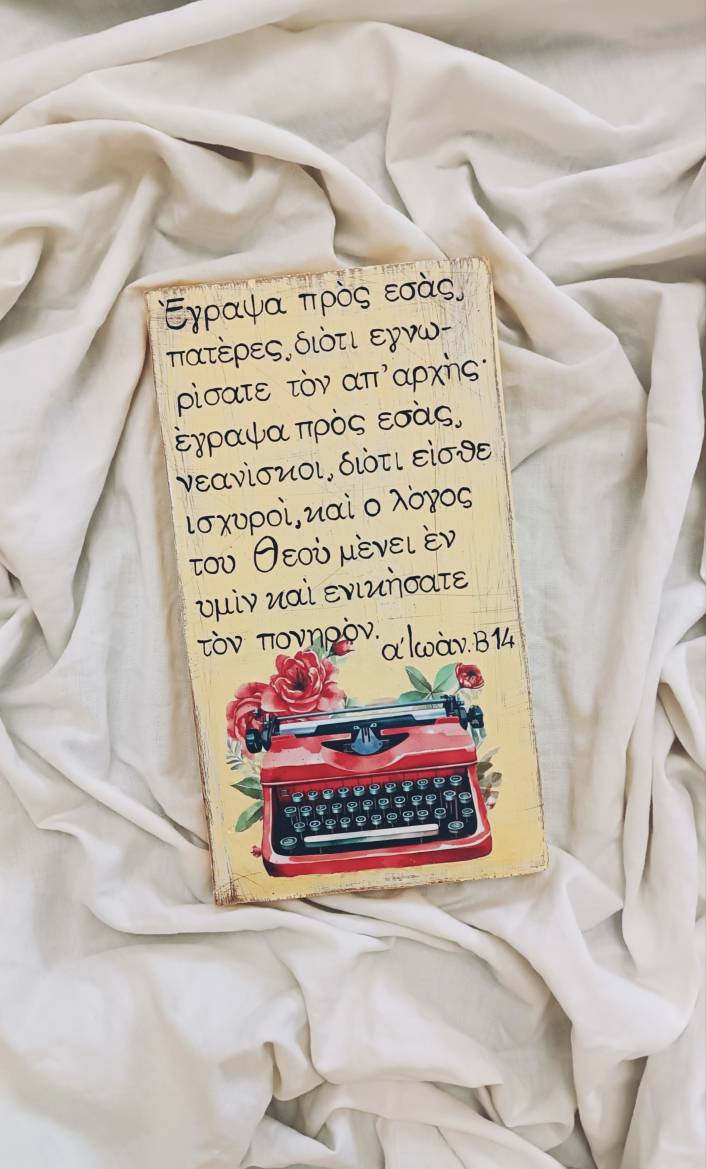 Ἐγραψα πρὸς εσὰς,
πατὲρες, διὸτι εγνω-
ρὶσατε τὸν απ' αρχὴς·
ὲγραψα πρὸς εσὰς,
νεανὶσκοι, διὸτι εὶσθε
ισχυροὶ, καὶ ο λὸγος
του Θεοὺ μὲνει ὲν
υμὶν καὶ ενικὴσατε
τὸν πονηρὸν.
α' Ιωὰν. Β 14